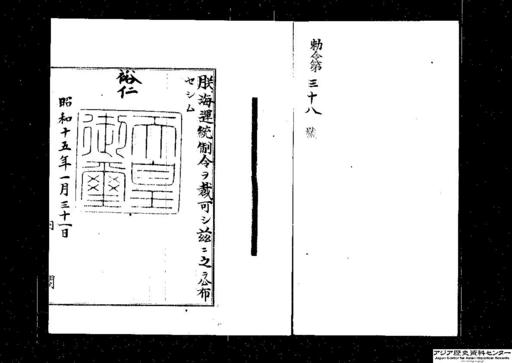 勅令第三十八號
朕海運統制令ヲ裁可シ茲ニ之ヲ公布
セシム
裕仁
天皇御璽
昭和十五年一月三十一日
内閣
アジア歴史資料センター
Japan Center for Asian Historical Records